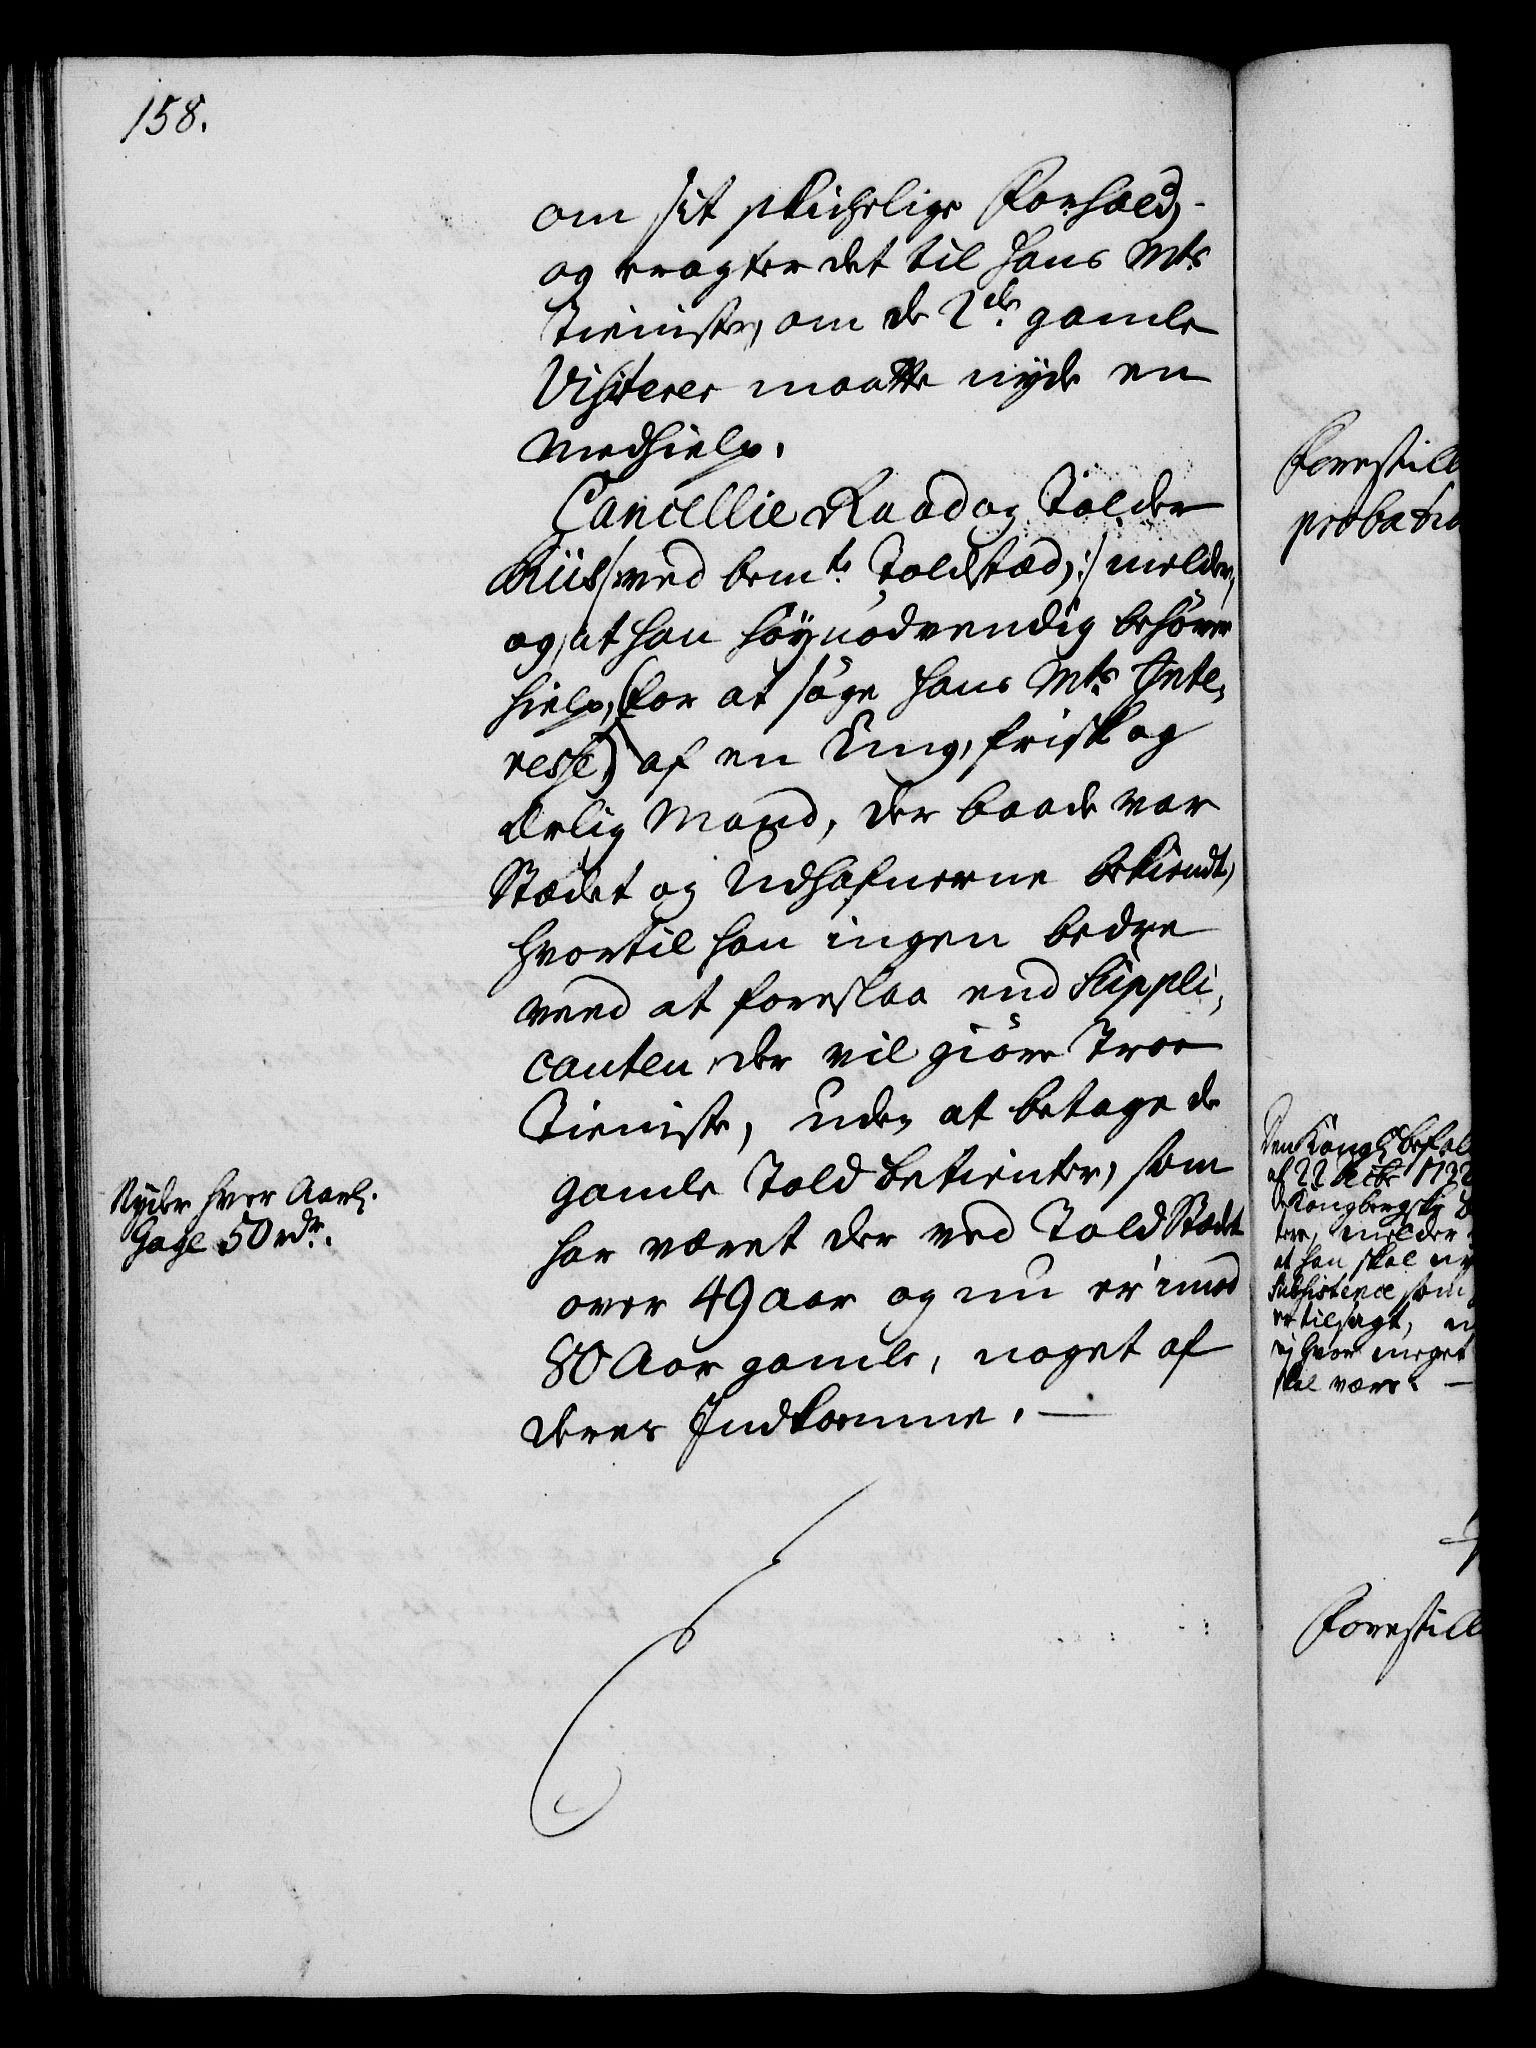 158.
om sit skichelige Forhold,
og eragter det til Hans Mts
Tieniste, om de 2de gamle
Visiterer maatte nyde en
Medhielp.
Cancellie Raad og Tolder
Riis /: ved bemte Toldsted, :/ melder,
og, at han høynødvendig behøver
hielp, (for at søge Hans Mts Inte-
resse) af en Ung, frisk og
Ærlig Mand, der baade var
Stædet og Udhafnerne bekiendt,
hvortil han ingen bedre
veed at foreslaa end Suppli-
canten der vil giøre Troe
Tieniste, uden at betage de
gamle Told betienter, som
har været der ved Told Stædet
over 49 aar og nu er imod
80 Aar gamle, noget af
deres Indkomme. —
Nyder hver Aarl.
Gage 50 rdr.
Forestill
probatio
Den Kongl. befal
af 22 Decbr 173
Kongbergske
tere, melder
at han skal ny
Subsistence som
er tilsagt, m
ej hvor meget
skal være. —
Forestill